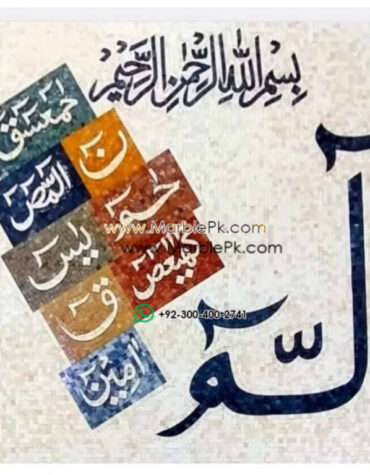 بِسْمِ اللهِ الرَّحْمٰنِ الرَّحِيْمِ
حمعسق
نٓ
المص
حٰمٓ
يٰس
كهيعص
قٓ
اٰمين
آلمّٓ
www.MarblePk.com
www.MarblePk.com
+92-300-400-2741